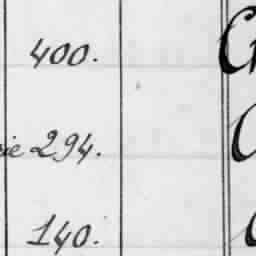 400.
294.
140.